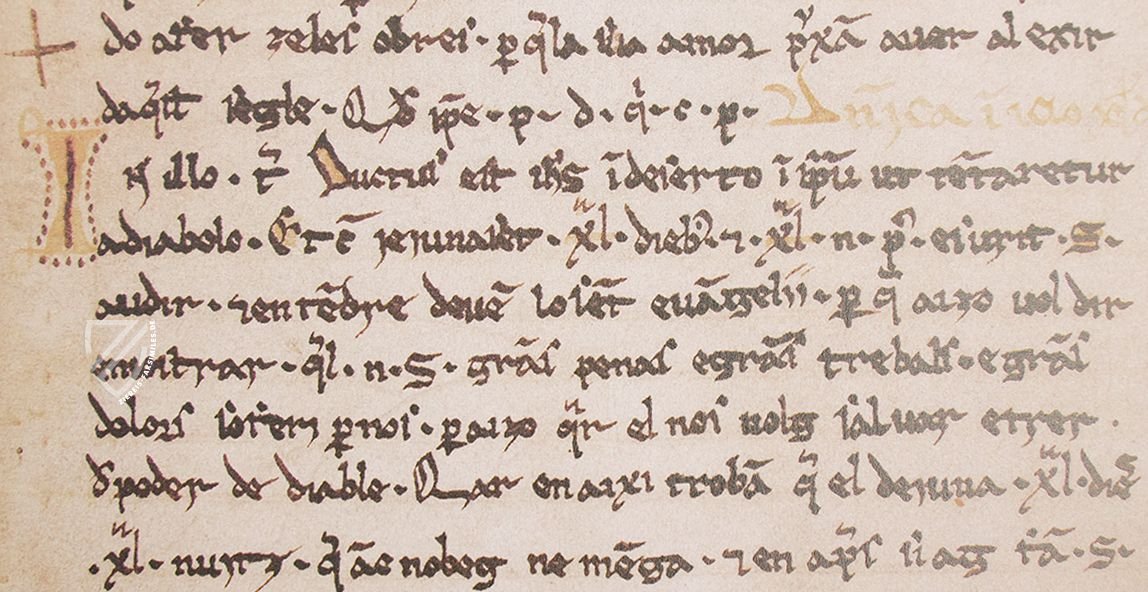 do atrer zeles obres · p q̄la uia amor pͥxā auer al exir
daq̄st segle · Qd ip̄e · p · d · q̄ · c · p · Dn̄ica
In illo · t̄ Ductus est ih̄s ī deserto ī sp̄u ut tētaretur
a diabolo · Et c̄ jejunasset · xl · dieb; · ⁊ · xl · n · p̄ · esurit · S ·
audir · ⁊ entēdre deuē lo sēt euāgeli · p q̄ aizo uol dir
emostrar · q̄l · n · S · grās penas e grās trebalſ · e grās
dolors soferi p nos · p aizo q̄r el nos uolg saluar etrer
d poder de diable · Qar en aixi trobā q̄ el dejuna · xl · diē
· xl · nuitz · q̄ āc no beg ne mēga · ⁊ en ap̄s si ag fā · S ·